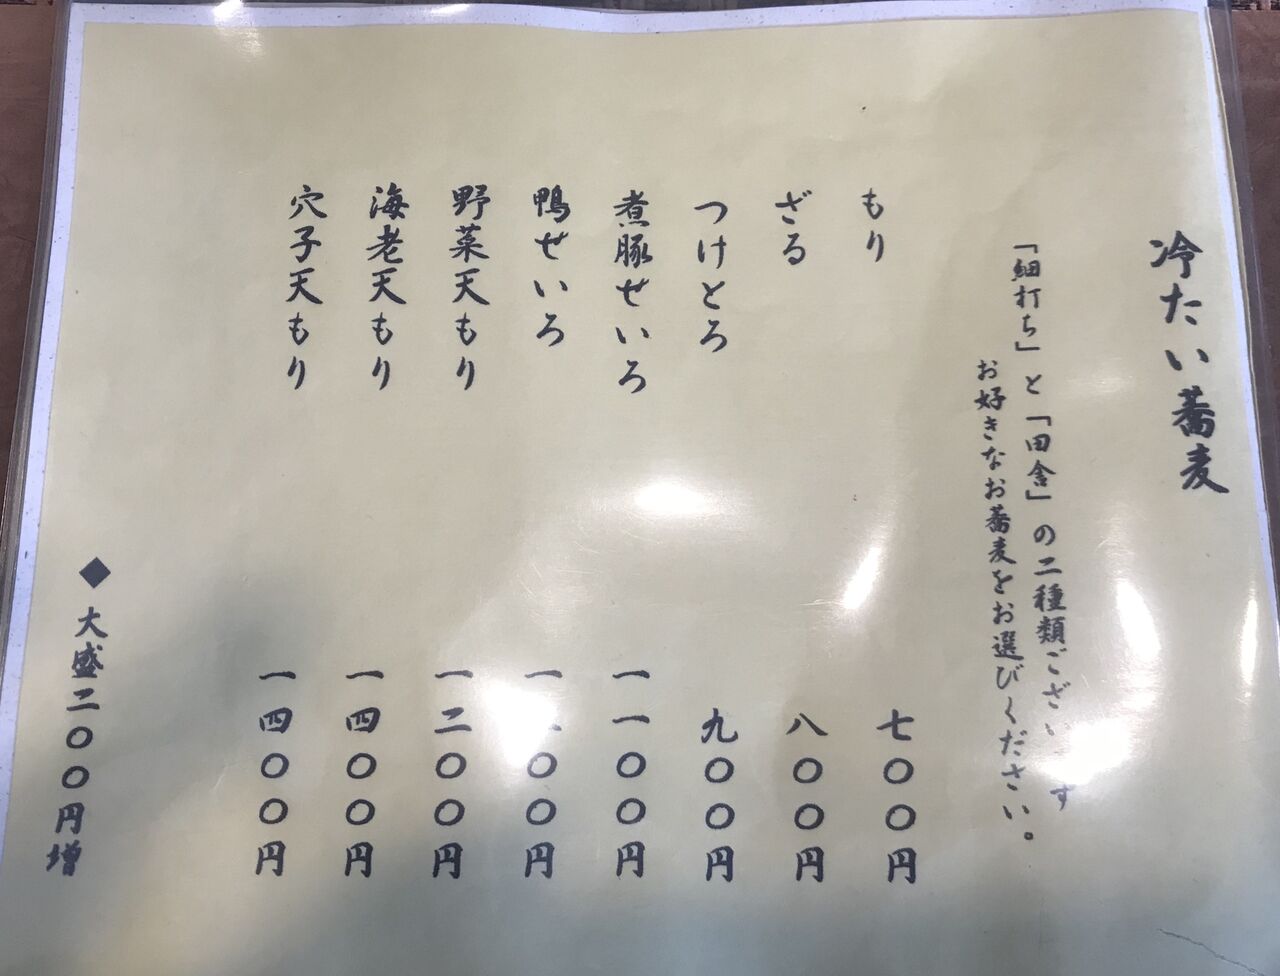 冷たい蕎麦
「細打ち」と「田舎」の二種類ござい す
お好きなお蕎麦をお選びください。
もり 七〇〇円
ざる 八〇〇円
つけとろ 九〇〇円
煮豚せいろ 一一〇〇円
鴨せいろ 一 〇〇円
野菜天もり 一二〇〇円
海老天もり 一四〇〇円
穴子天もり 一四〇〇円
◆大盛二〇〇円増